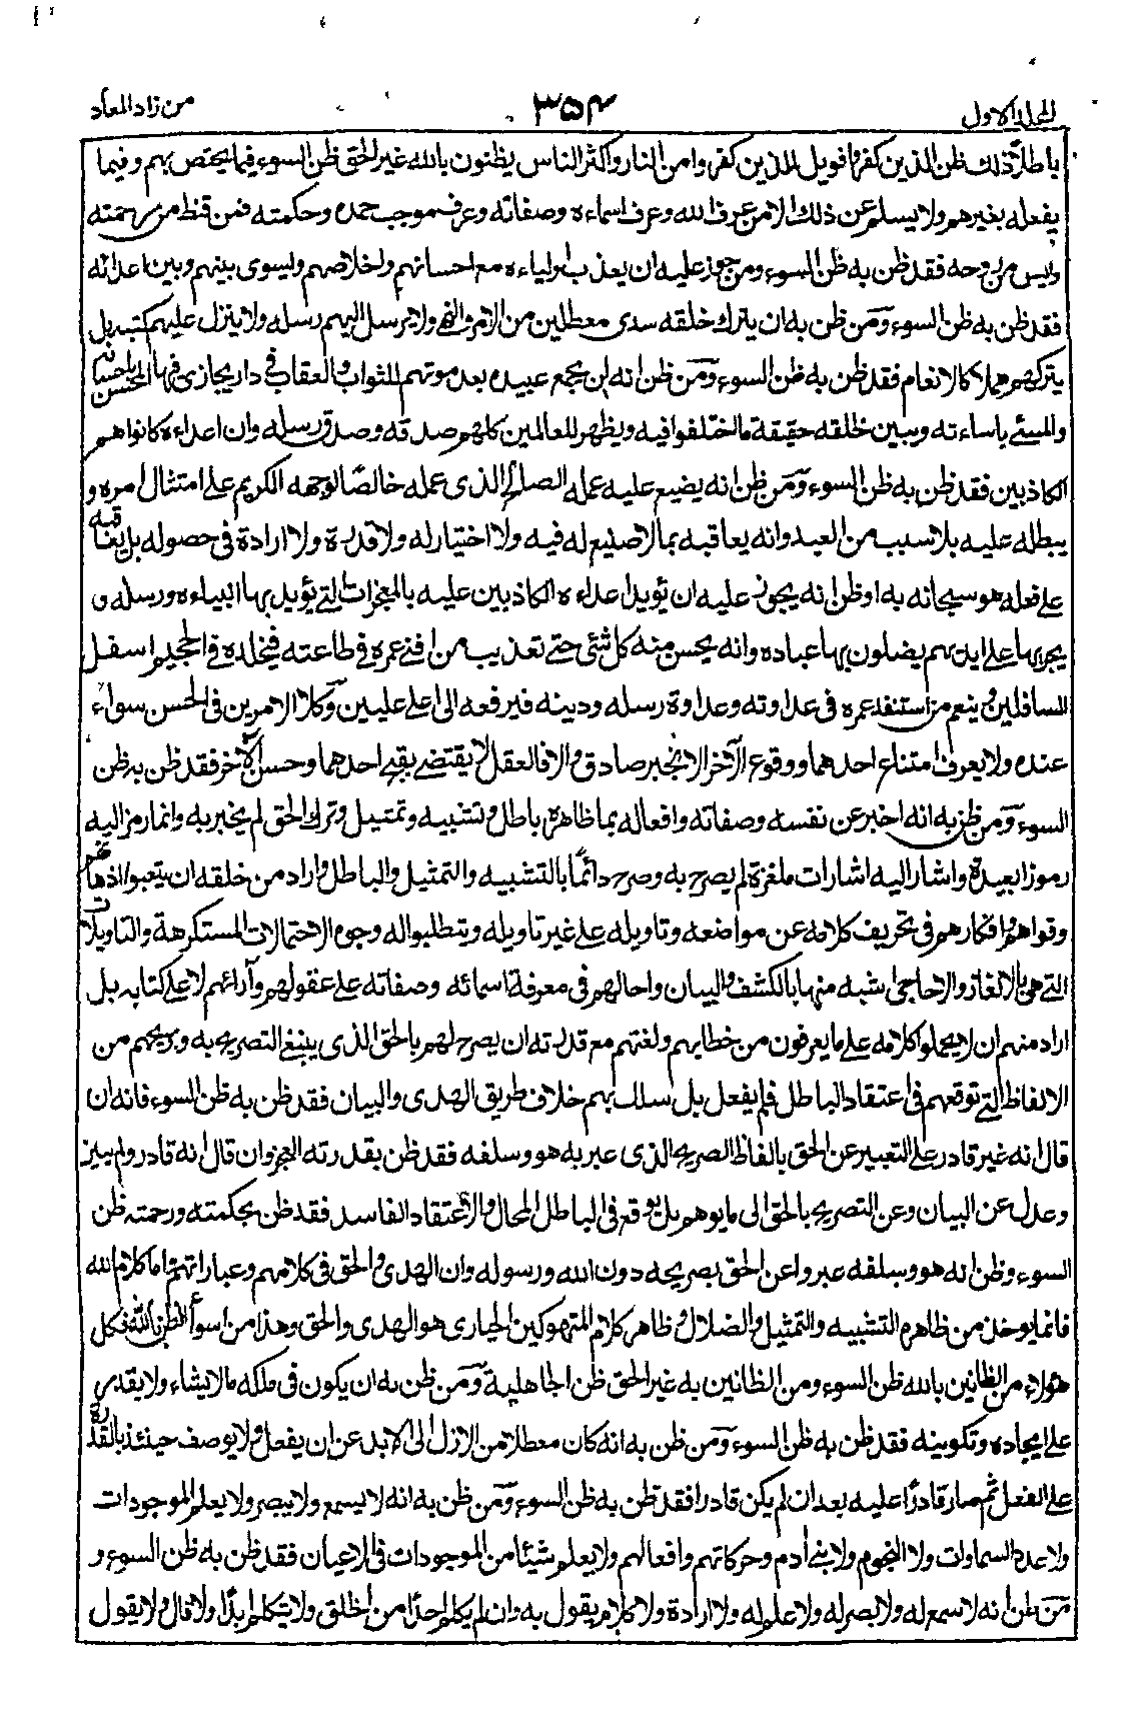 المجلد الاول ٣٥٤ من زاد المعاد
باطلا ذلك ظن الذين كفروا فويل للذين كفروا من النار واكثر الناس يظنون بالله غير الحق ظن السوء فيما يختص بهم وفيما
يفعله بغيرهم ولا يسلم عن ذلك الا من عرف الله وعرف اسماءه وصفاته وعرف موجب حمده وحكمته فمن قنط من رحمته
وايس من روحه فقد ظن به ظن السوء ومن جوز عليه ان يعذب اولياءه مع احسانهم واخلاصهم ويسوى بينهم وبين اعدائه
فقد ظن به ظن السوء ومن ظن به ان يترك خلقه سدى معطلين من الامر والنهي ولا يرسل اليهم رسله ولا ينزل عليهم كتبه بل
يتركهم هملا كالانعام فقد ظن به ظن السوء ومن ظن انه لن يجمع عبيده بعد موتهم للثواب والعقاب في دار يجازى فيها المحسن باحسانه
والمسئ باساءته ويبين خلقه حقيقة ما اختلفوا فيه ويظهر للعالمين كلهم صدقه وصدق رسله وان اعداءه كانوا هم
الكاذبين فقد ظن به ظن السوء ومن ظن انه يضيع عليه عمله الصالح الذى عمله خالصًا لوجهه الكريم على امتثال امره و
يبطله عليه بلا سبب من العبد وانه يعاقبه بما لا صنيع له فيه ولا اختيار له ولا قدرة ولا ارادة في حصوله بل يعاقبه
على فعله هو سبحانه به او ظن انه يجوز عليه ان يؤيد اعداءه الكاذبين عليه بالمعجزات التي يؤيد بها انبياءه ورسله و
يجريها على ايديهم يضلون بها عباده وانه يحسن منه كل شئ حتى تعذيب من افنى عمره في طاعته فيخلده في الجحيم اسفل
السافلين وينعم من استنفد عمره في عداوته وعداوة رسله ودينه فيرفعه الى اعلى عليين وكلا الامرين في الحسن سواء
عنده ولا يعرف امتناع احدهما ووقوع الآخر الا بخبر صادق والا فالعقل لا يقتضي بقبح احدهما وحسن الآخر فقد ظن به ظن
السوء ومن ظن به انه اخبر عن نفسه وصفاته وافعاله بما ظاهره باطل وتشبيه وتمثيل وترك الحق لم يخبر به وانما رمز اليه
رموزا بعيدة واشار اليه اشارات ملغزة لم يصرح به وصرح دائمًا بالتشبيه والتمثيل والباطل واراد من خلقه ان يتعبوا اذهانهم
وقواهم وافكارهم في تحريف كلامه عن مواضعه وتاويله على غير تاويله ويتطلبوا له وجوه الاحتمالات المستكرهة والتاويلات
التي هي بالالغاز والاحاجى اشبه منها بالكشف والبيان واحالهم في معرفة اسمائه وصفاته على عقولهم وآرائهم لا على كتابه بل
اراد منهم ان لا يحملوا كلامه على ما يعرفون من خطابهم ولغتهم مع قدرته ان يصرح لهم بالحق الذى ينبغي التصريح به ويريحهم من
الالفاظ التي توقعهم في اعتقاد الباطل فلم يفعل بل سلك بهم خلاف طريق الهدى والبيان فقد ظن به ظن السوء فانه ان
قال انه غير قادر على التعبير عن الحق بالفاظ الصريح الذى عبر به هو وسلفه فقد ظن بقدرته العجز وان قال انه قادر ولم يبين
وعدل عن البيان وعن التصريح بالحق الى ما يوهم بل يوقع في الباطل المحال والاعتقاد الفاسد فقد ظن بحكمته ورحمته ظن
السوء وظن انه هو وسلفه عبروا عن الحق بصريحه دون الله ورسوله وان الهدى والحق في كلامهم وعباراتهم واما كلام الله
فانما يوخذ من ظاهره التشبيه والتمثيل والضلال وظاهر كلام المتهوكين الحيارى هو الهدى والحق وهذا من اسوأ الظن بالله فكل
هؤلاء من الظانين بالله ظن السوء ومن الظانين به غير الحق ظن الجاهلية ومن ظن به ان يكون في ملكه ما لا يشاء ولا يقدر
على ايجاده وتكوينه فقد ظن به ظن السوء ومن ظن به انه كان معطلا من الازل الى الابد عن ان يفعل ولا يوصف حينئذ بالقدرة
على الفعل ثم صار قادرًا عليه بعد ان لم يكن قادرا فقد ظن به ظن السوء ومن ظن به انه لا يسمع ولا يبصر ولا يعلم الموجودات
ولا عدد السماوات ولا النجوم ولا بني أدم وحركاتهم وافعالهم ولا يعلم شيئا من الموجودات في الاعيان فقد ظن به ظن السوء و
من ظن انه لا سمع له ولا بصر له ولا علم له ولا ارادة ولا كلام يقول به وانه لم يكلم احدًا من الخلق ولا يتكلم ابدًا ولا قال ولا يقول